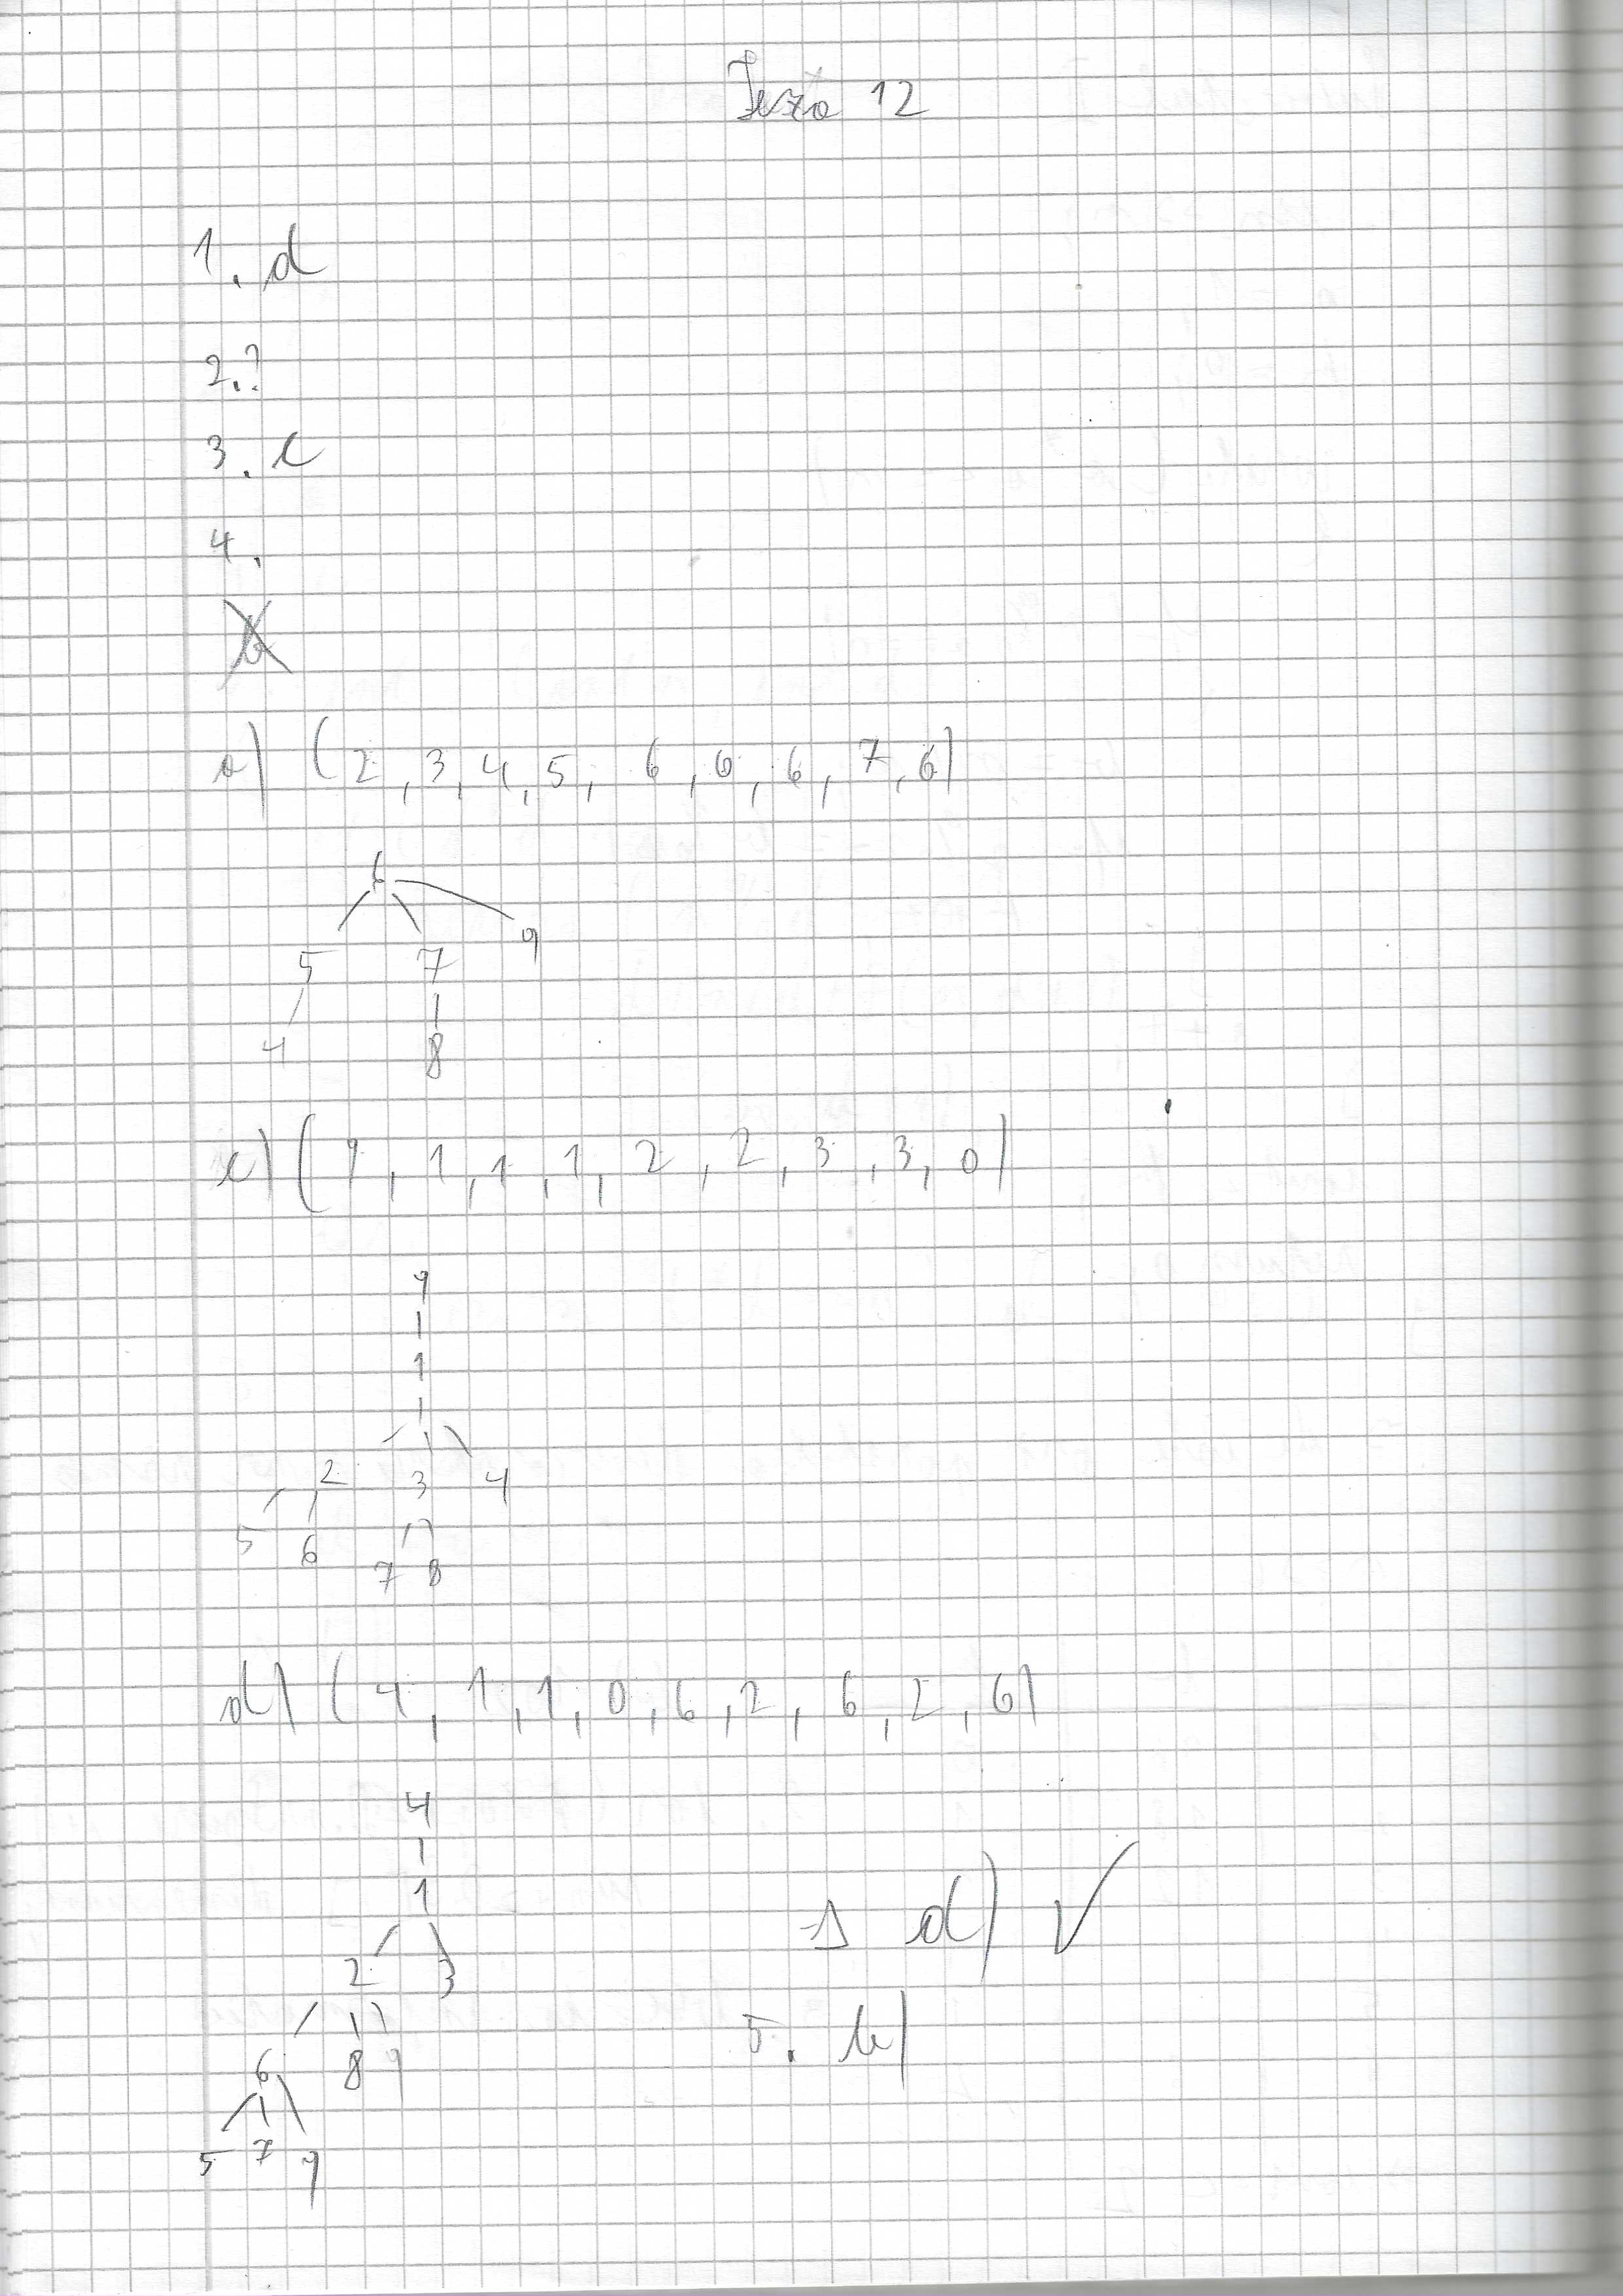 12
1. d
2. ?
3. c
4.
a) (2, 3, 4, 5, 6, 6, 6, 7, 6)
6
5 7 9
4 8
c) (9, 1, 1, 1, 2, 2, 3, 3, 0)
9
1
2 3 4
5 6 7 8
d) (4, 1, 1, 0, 6, 2, 6, 2, 6)
4
1
2 3
6 8 9
5 7 9
d) ✓
5. b)